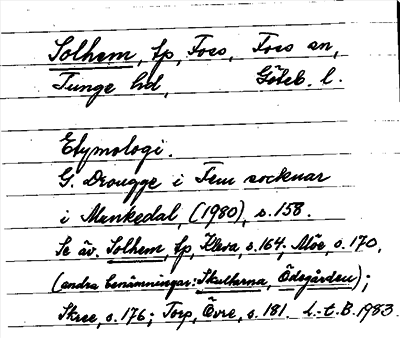 Solhem, lp, Foss, Foss sn,
Tunge hd, Göteb. l.
Etymologi.
G. Drougge i Fem socknar
i Munkedal, (1980), s. 158.
Se äv. Solhem, lp, Kleva, s. 164; Möe, s. 170,
(andra benämningar: Skulterna, Ödegården);
Skree, s. 176; Torp, Övre, s. 181. L.-t. B. 1983.